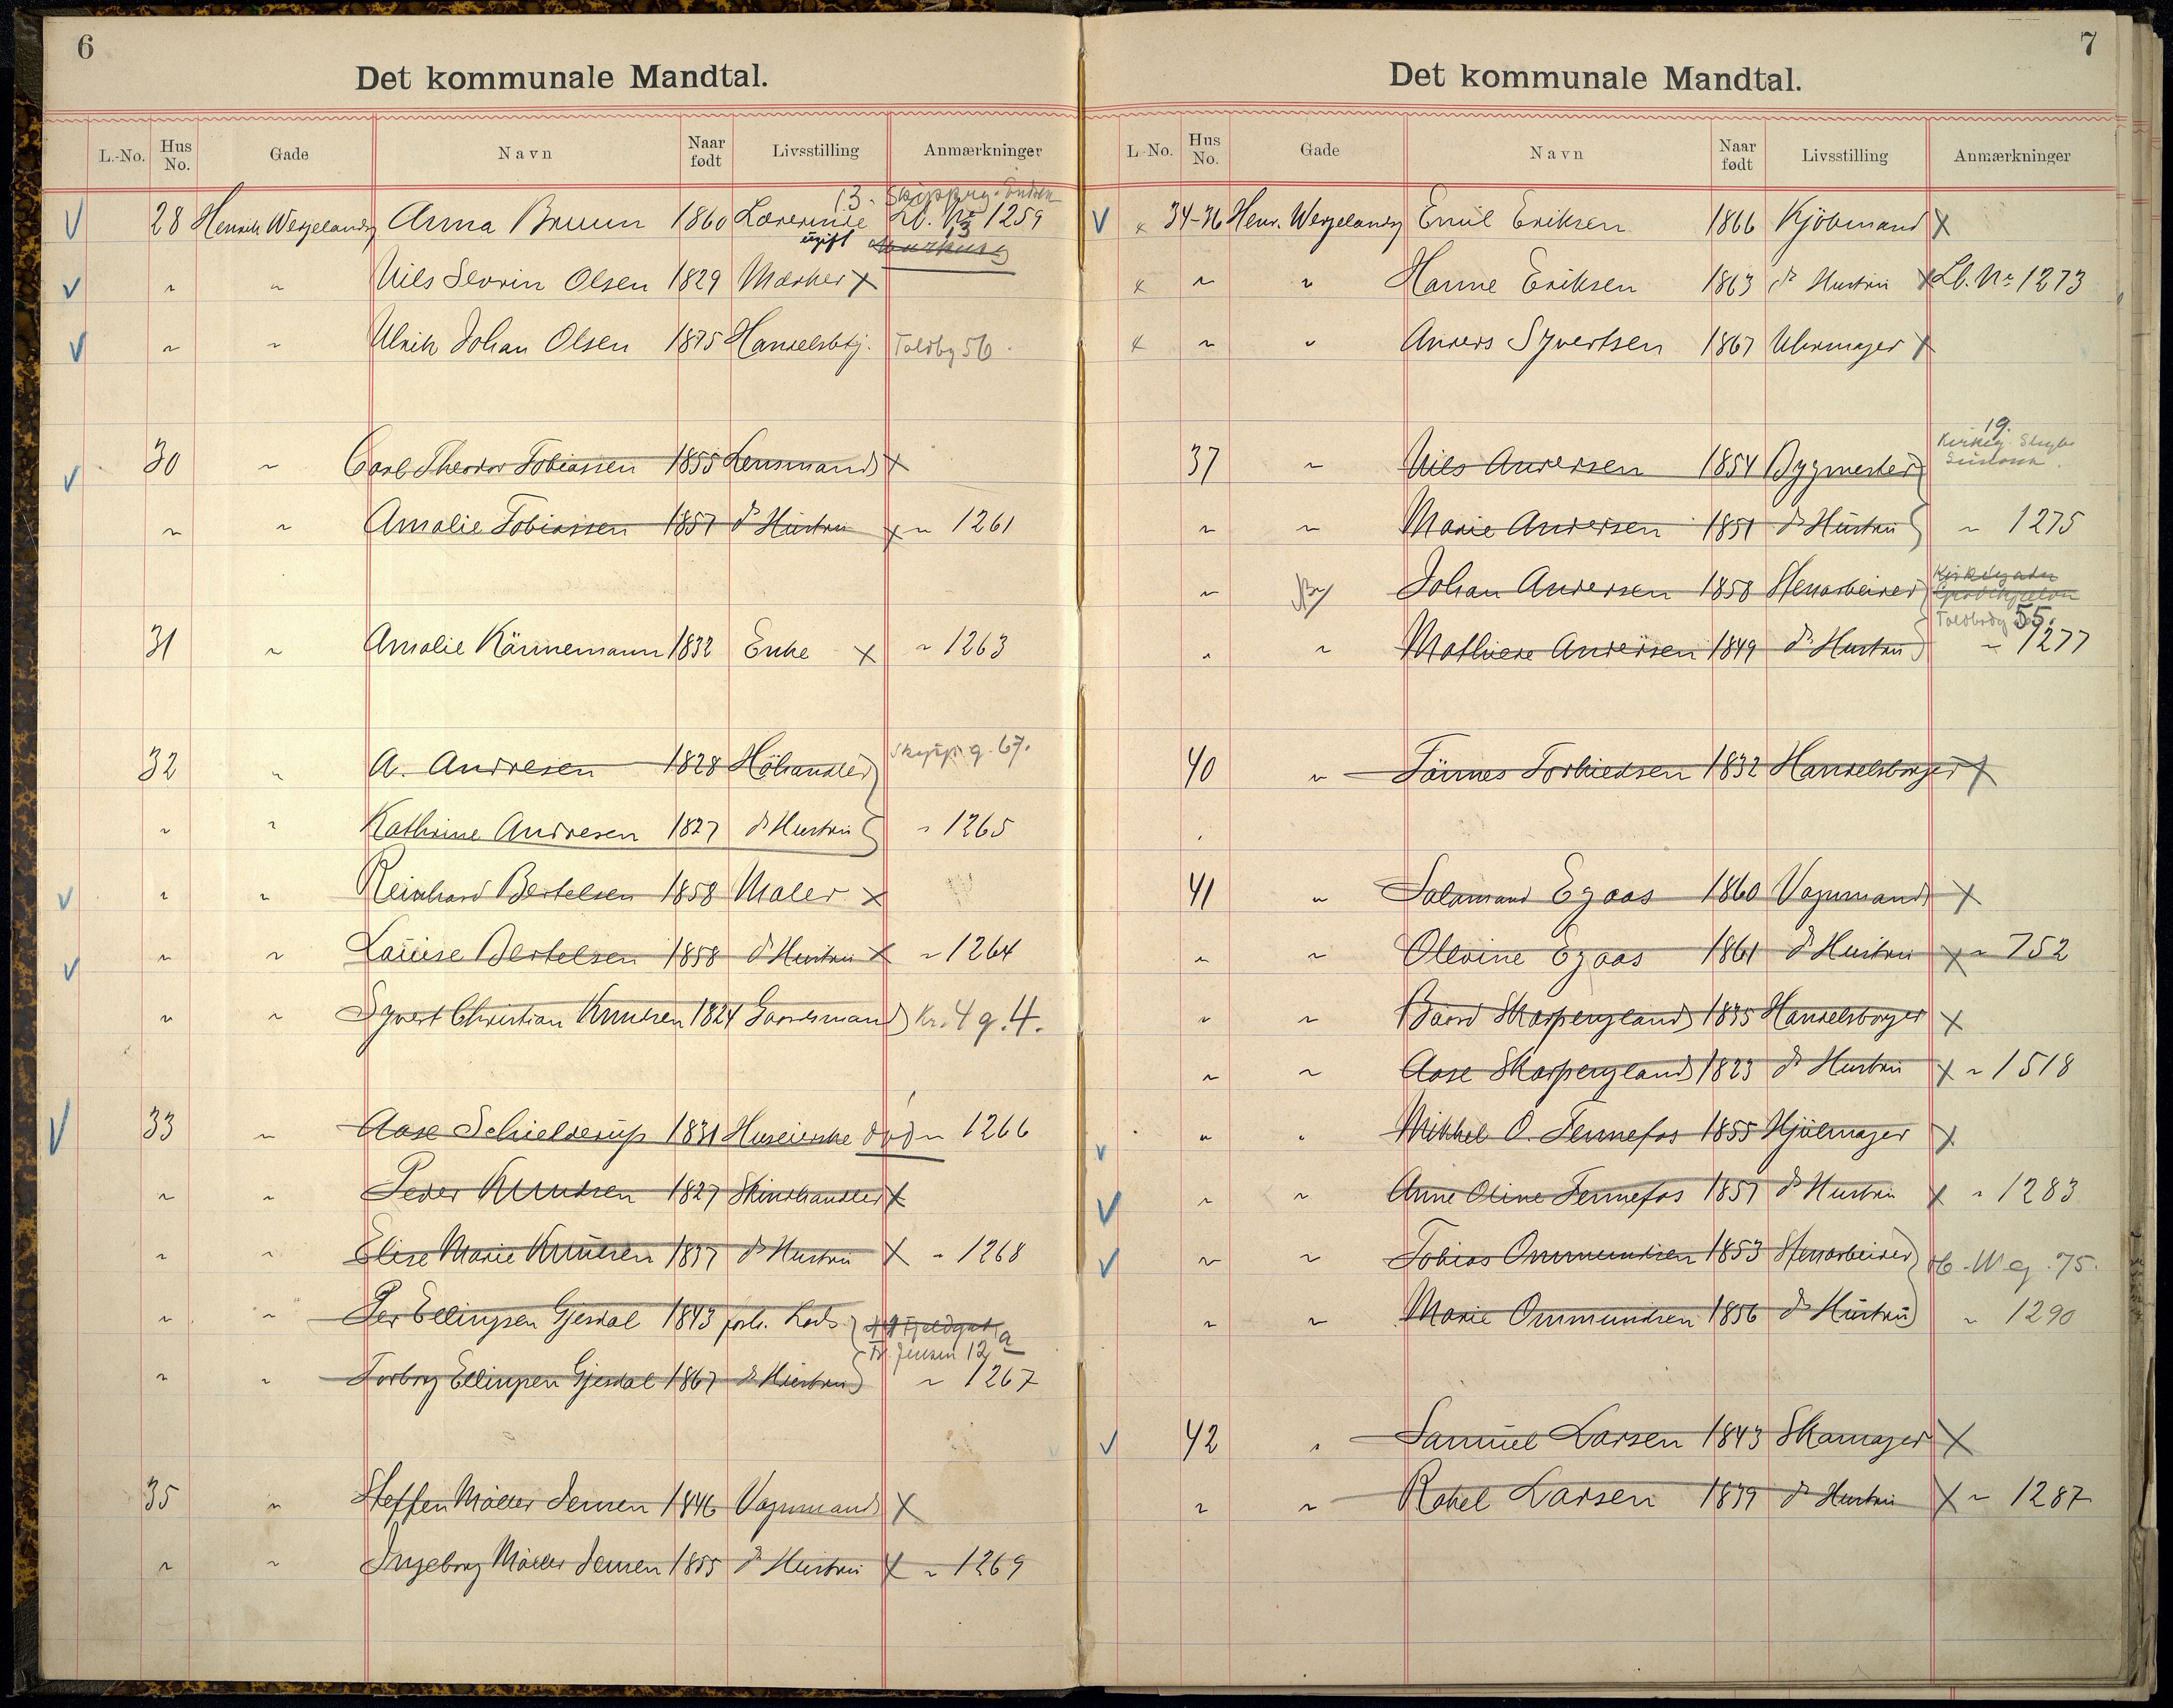 6
Det kommunale Mandtal.
L.-No. Hus No. Gade Navn Naar født Livsstilling Anmærkninger
13. Skippeg.
28 Henrik Wergelandsg Anna Bruun 1860 Lærerinde Lb. No 1259
ugift 13
" " Nils Severin Olsen 1829 Mæcker X
" " Ulrik Johan Olsen 1875 Handelsbtj. Toldbg 56.
30 " Carl Theodor Tobiassen 1855 Lensmand X
" " Amalie Tobiassen 1857 ds Hustru X " 1261
31 " Amalie Kännemann 1832 Enke X " 1263
32 " A. Andresen 1828 Höhandler Skippg. 67.
" " Kathrine Andresen 1827 ds Hustru " 1265
" " Reinhard Bertelsen 1858 Maler X
" " Louise Bertelsen 1858 ds Hustru X " 1264
" " Syvert Christian Knudsen 1824 Gaardsmand Kr. 4 g. 4.
33 " Aase Schielderup 1831 Huseierske död " 1266
" " Peder Knudsen 1827 Skindhandler X
" " Elise Marie Knudsen 1837 ds Hustru X " 1268
" " Per Ellingsen Gjesdal 1843 forh. Lods
Tr. Jensen 12 a
" " Torborg Ellingsen Gjesdal 1867 ds Hustru " 1267
35 " Steffen Möller Jensen 1846 Vognmand X
" " Ingeborg Möller Jensen 1855 ds Hustru X " 1269
7
Det kommunale Mandtal.
L-No. Hus No. Gade Navn Naar født Livsstilling Anmærkninger
x 34-36 Henr. Wergelandsg Emil Eriksen 1866 Kjöbmand X
x " " Hanne Eriksen 1863 ds Hustru X Lb. No 1273
x " " Anders Syvertsen 1867 Uhrmager X
19.
Kirkeg.
37 " Nils Andersen 1854 Bygmester
" " Marie Andersen 1851 ds Hustru " 1275
Kirkegaden
" Johan Andersen 1858 Henarbeider
Toldbodg 55.
" " Mathilde Andersen 1849 ds Hustru " 1277
40 " Tönnes Torkildsen 1832 Handelsborger X
41 " Salamand Egaas 1860 Vognmand X
" " Olevine Egaas 1861 ds Hustru X " 752
" " Baard Skarpengland 1835 Handelsborger X
" " Aase Skarpengland 1823 ds Hustru X " 1518
" " Mikkel O. Fennefos 1855 Hjulmager X
" " Anne Oline Fennefos 1857 ds Hustru X " 1283
" " Tobias Ommundsen 1853 Henarbeider H. W g. 75.
" " Marie Ommundsen 1856 ds Hustru " 1290
42 " Samuel Larsen 1843 Skomager X
" " Rakel Larsen 1839 ds Hustru X " 1287